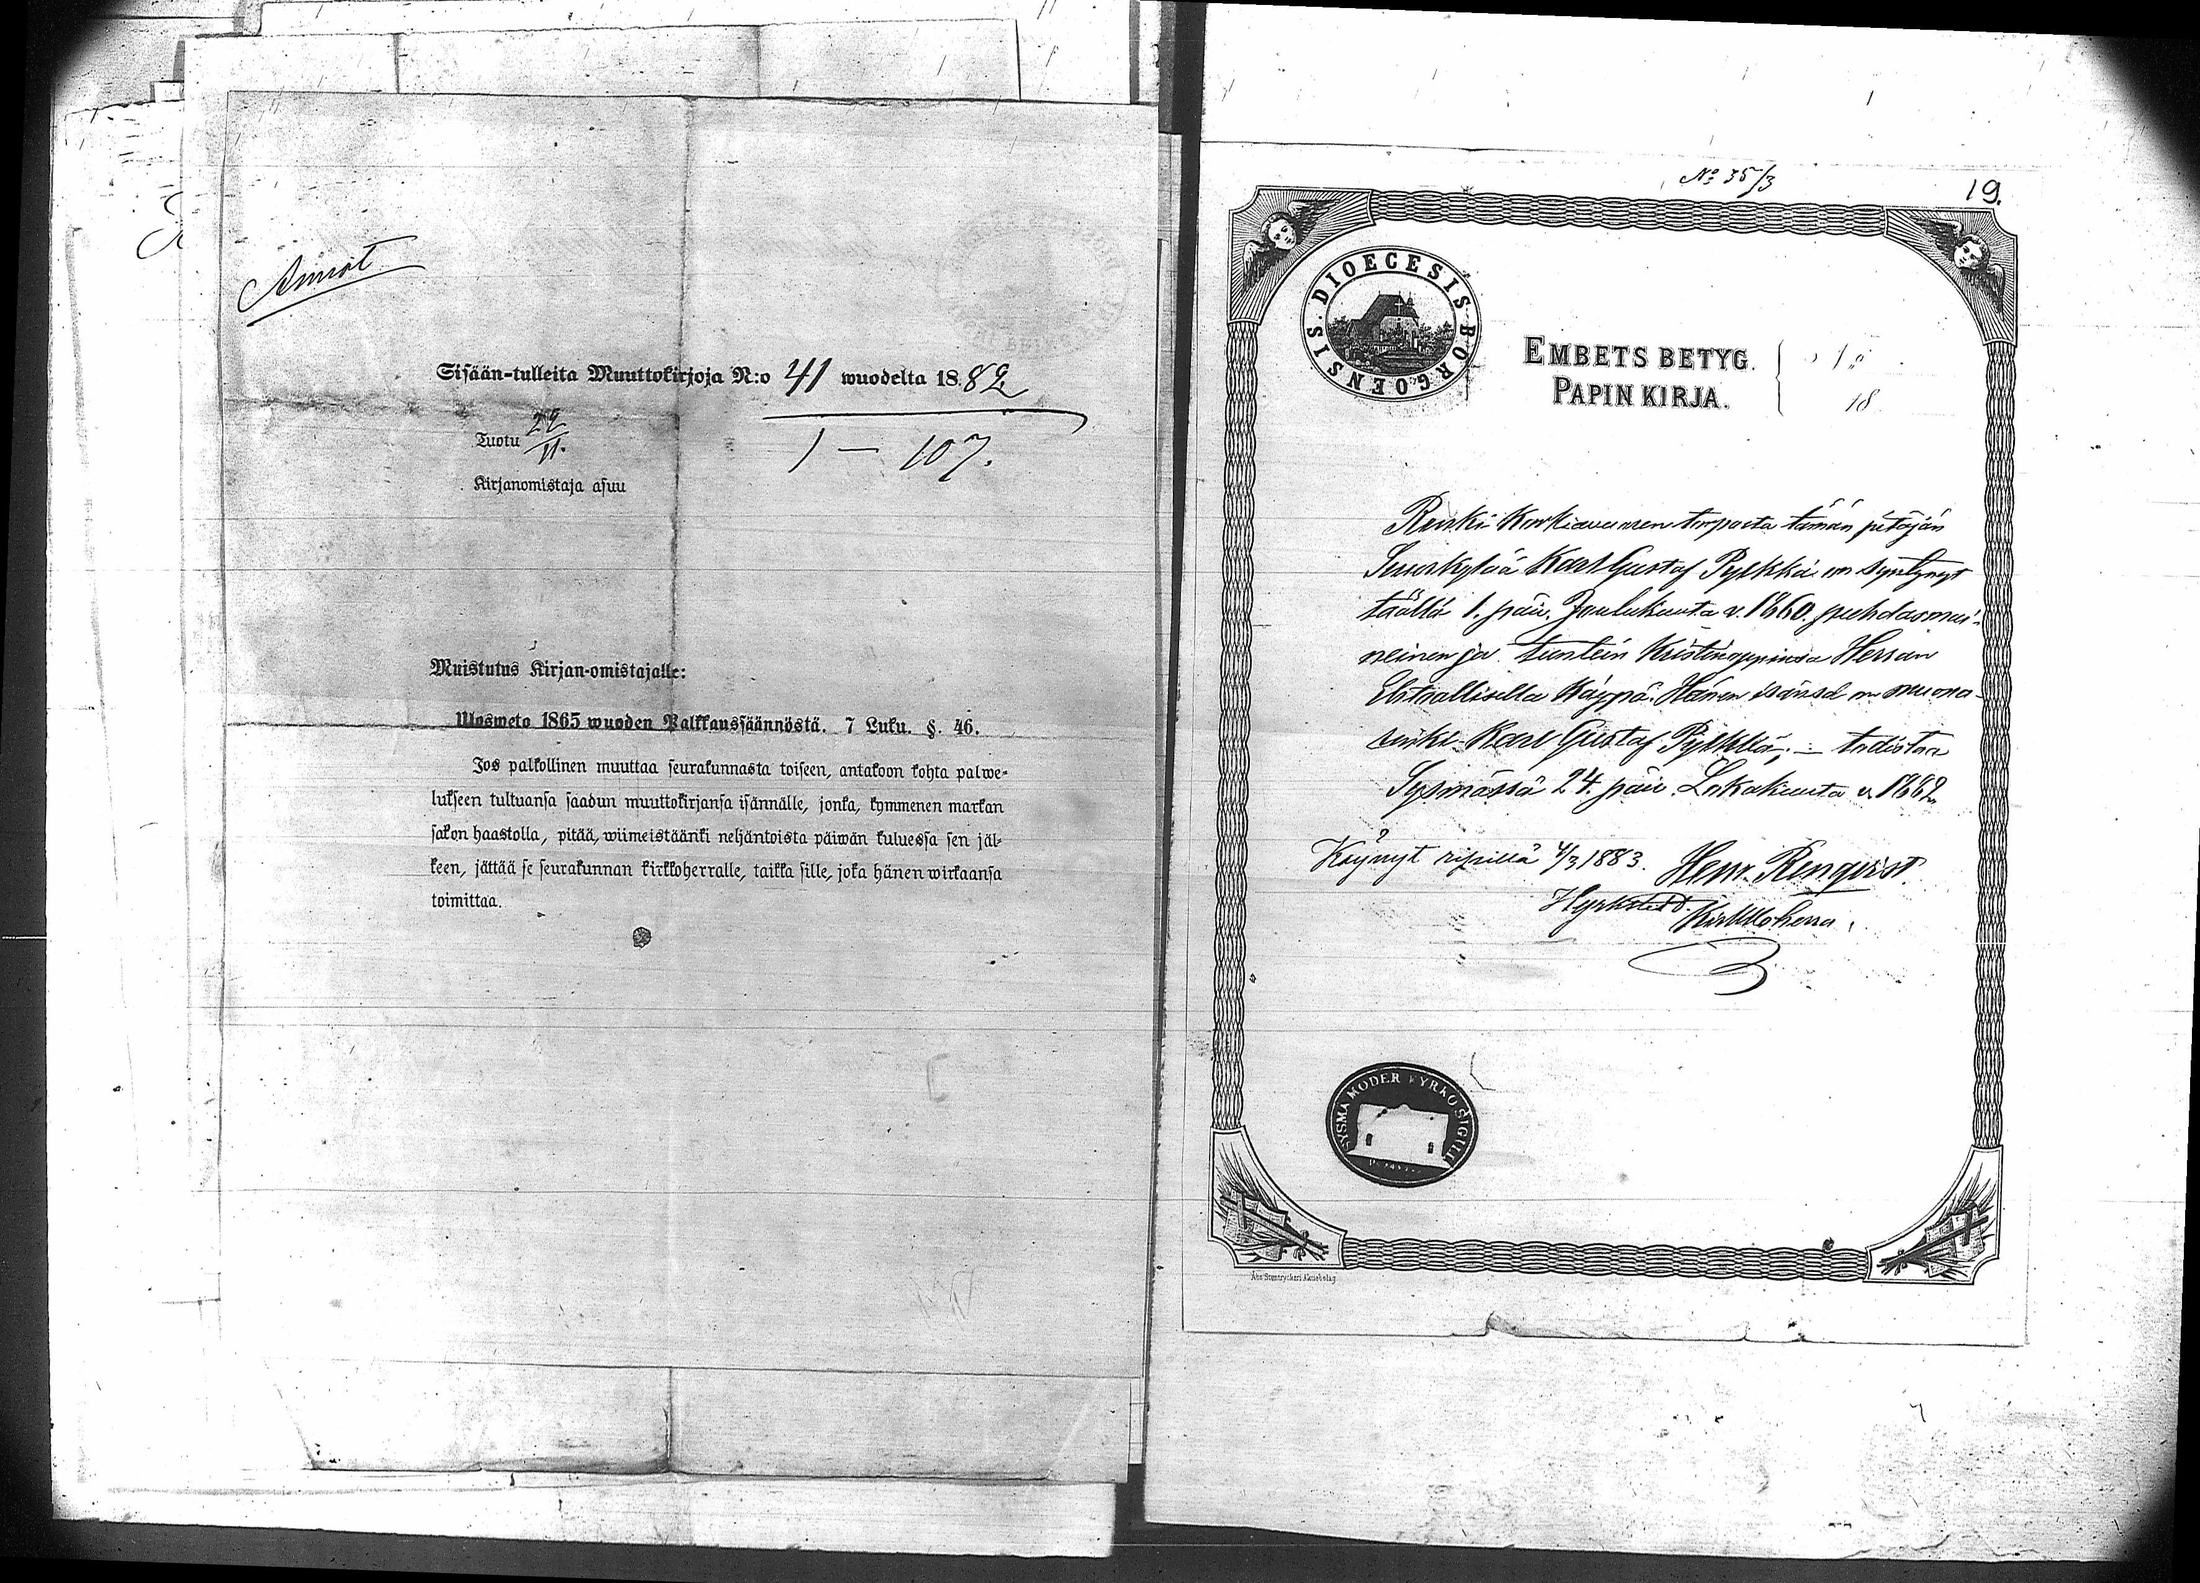 Sisään-tulleita Muuttokirjoja N:o 41 wuodelta 1882
Tuotu 22/11.
1 — 107.
Kirjanomistaja asuu
Muistutus Kirjan-omistajalle:
Ulosweto 1865 wuoden Palkkaussäännöstä. 7 Luku. §. 46.
Jos palkollinen muuttaa seurakunnasta toiseen, antakoon kohta palwe-
lukseen tultuansa saadun muuttokirjansa isännälle, jonka, kymmenen markan
sakon haastolla, pitää, wiimeistäänki neljäntoista päiwän kuluessa sen jäl-
keen, jättää se seurakunnan kirkkoherralle, taikka sille, joka hänen wirkaansa
toimittaa.
No 35/3
19.
DIOECESIS BORGOENSIS.
EMBETS BETYG.
PAPIN KIRJA.
18
Renki torpasta tämän pitäjän
Karl Gustaf Pylkkä on syntynyt
täällä 1. päiv. Joulukuuta v. 1860. puhdasmai-
neinen ja Herran
Ehtoollisella käypä. Hänen isänsä on muona-
renki Karl Gustaf Pylkkä; — todistaa
Sysmässä 24. päiv. Lokakuuta v. 1882
Käynyt ripillä 4/3 1883. Henr. Renqvist.
Kirkkoherra.
SYSMÄ MODER KYRKO SIGILL
Åbo Stentryckeri Aktiebolag